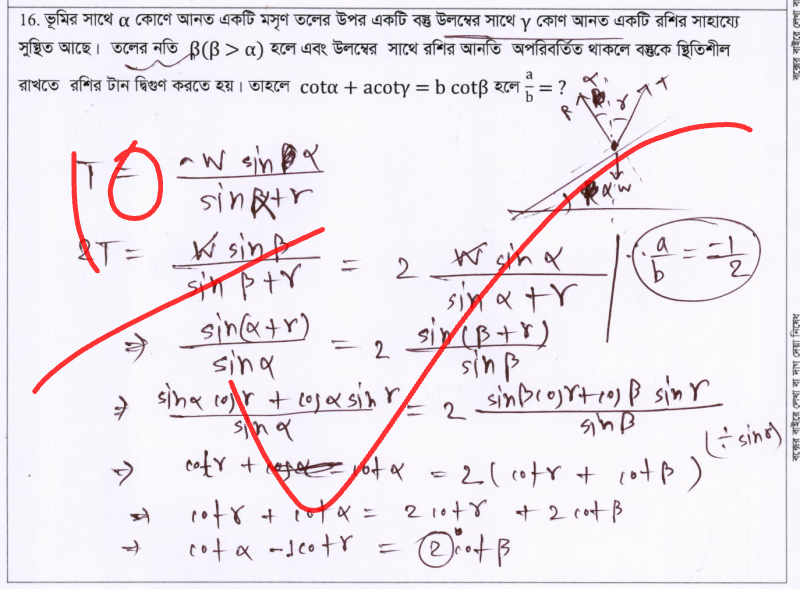 16. ভূমির সাথে α কোণে আনত একটি মসৃণ তলের উপর একটি বস্তু উলম্বের সাথে γ কোণ আনত একটি রশির সাহায্যে
সুস্থিত আছে। তলের নতি β(β > α) হলে এবং উলম্বের সাথে রশির আনতি অপরিবর্তিত থাকলে বস্তুকে স্থিতিশীল
রাখতে রশির টান দ্বিগুণ করতে হয়। তাহলে cotα + acotγ = b cotβ হলে a/b = ?
R α γ T
α W
T = W sin α / sin α+γ
2T = W sin β / sin β+γ = 2 W sin α / sin α+γ
∴ a/b = -1/2
⇒ sin(α+γ) / sin α = 2 sin(β+γ) / sin β
⇒ sinα cosγ + cosα sinγ / sin α = 2 sinβ cosγ + cosβ sinγ / sin β
(÷ sinγ)
⇒ cotγ + cot α = 2(cotγ + cotβ)
⇒ cotγ + cot α = 2cotγ + 2cotβ
⇒ cot α -1cotγ = 2 cot β